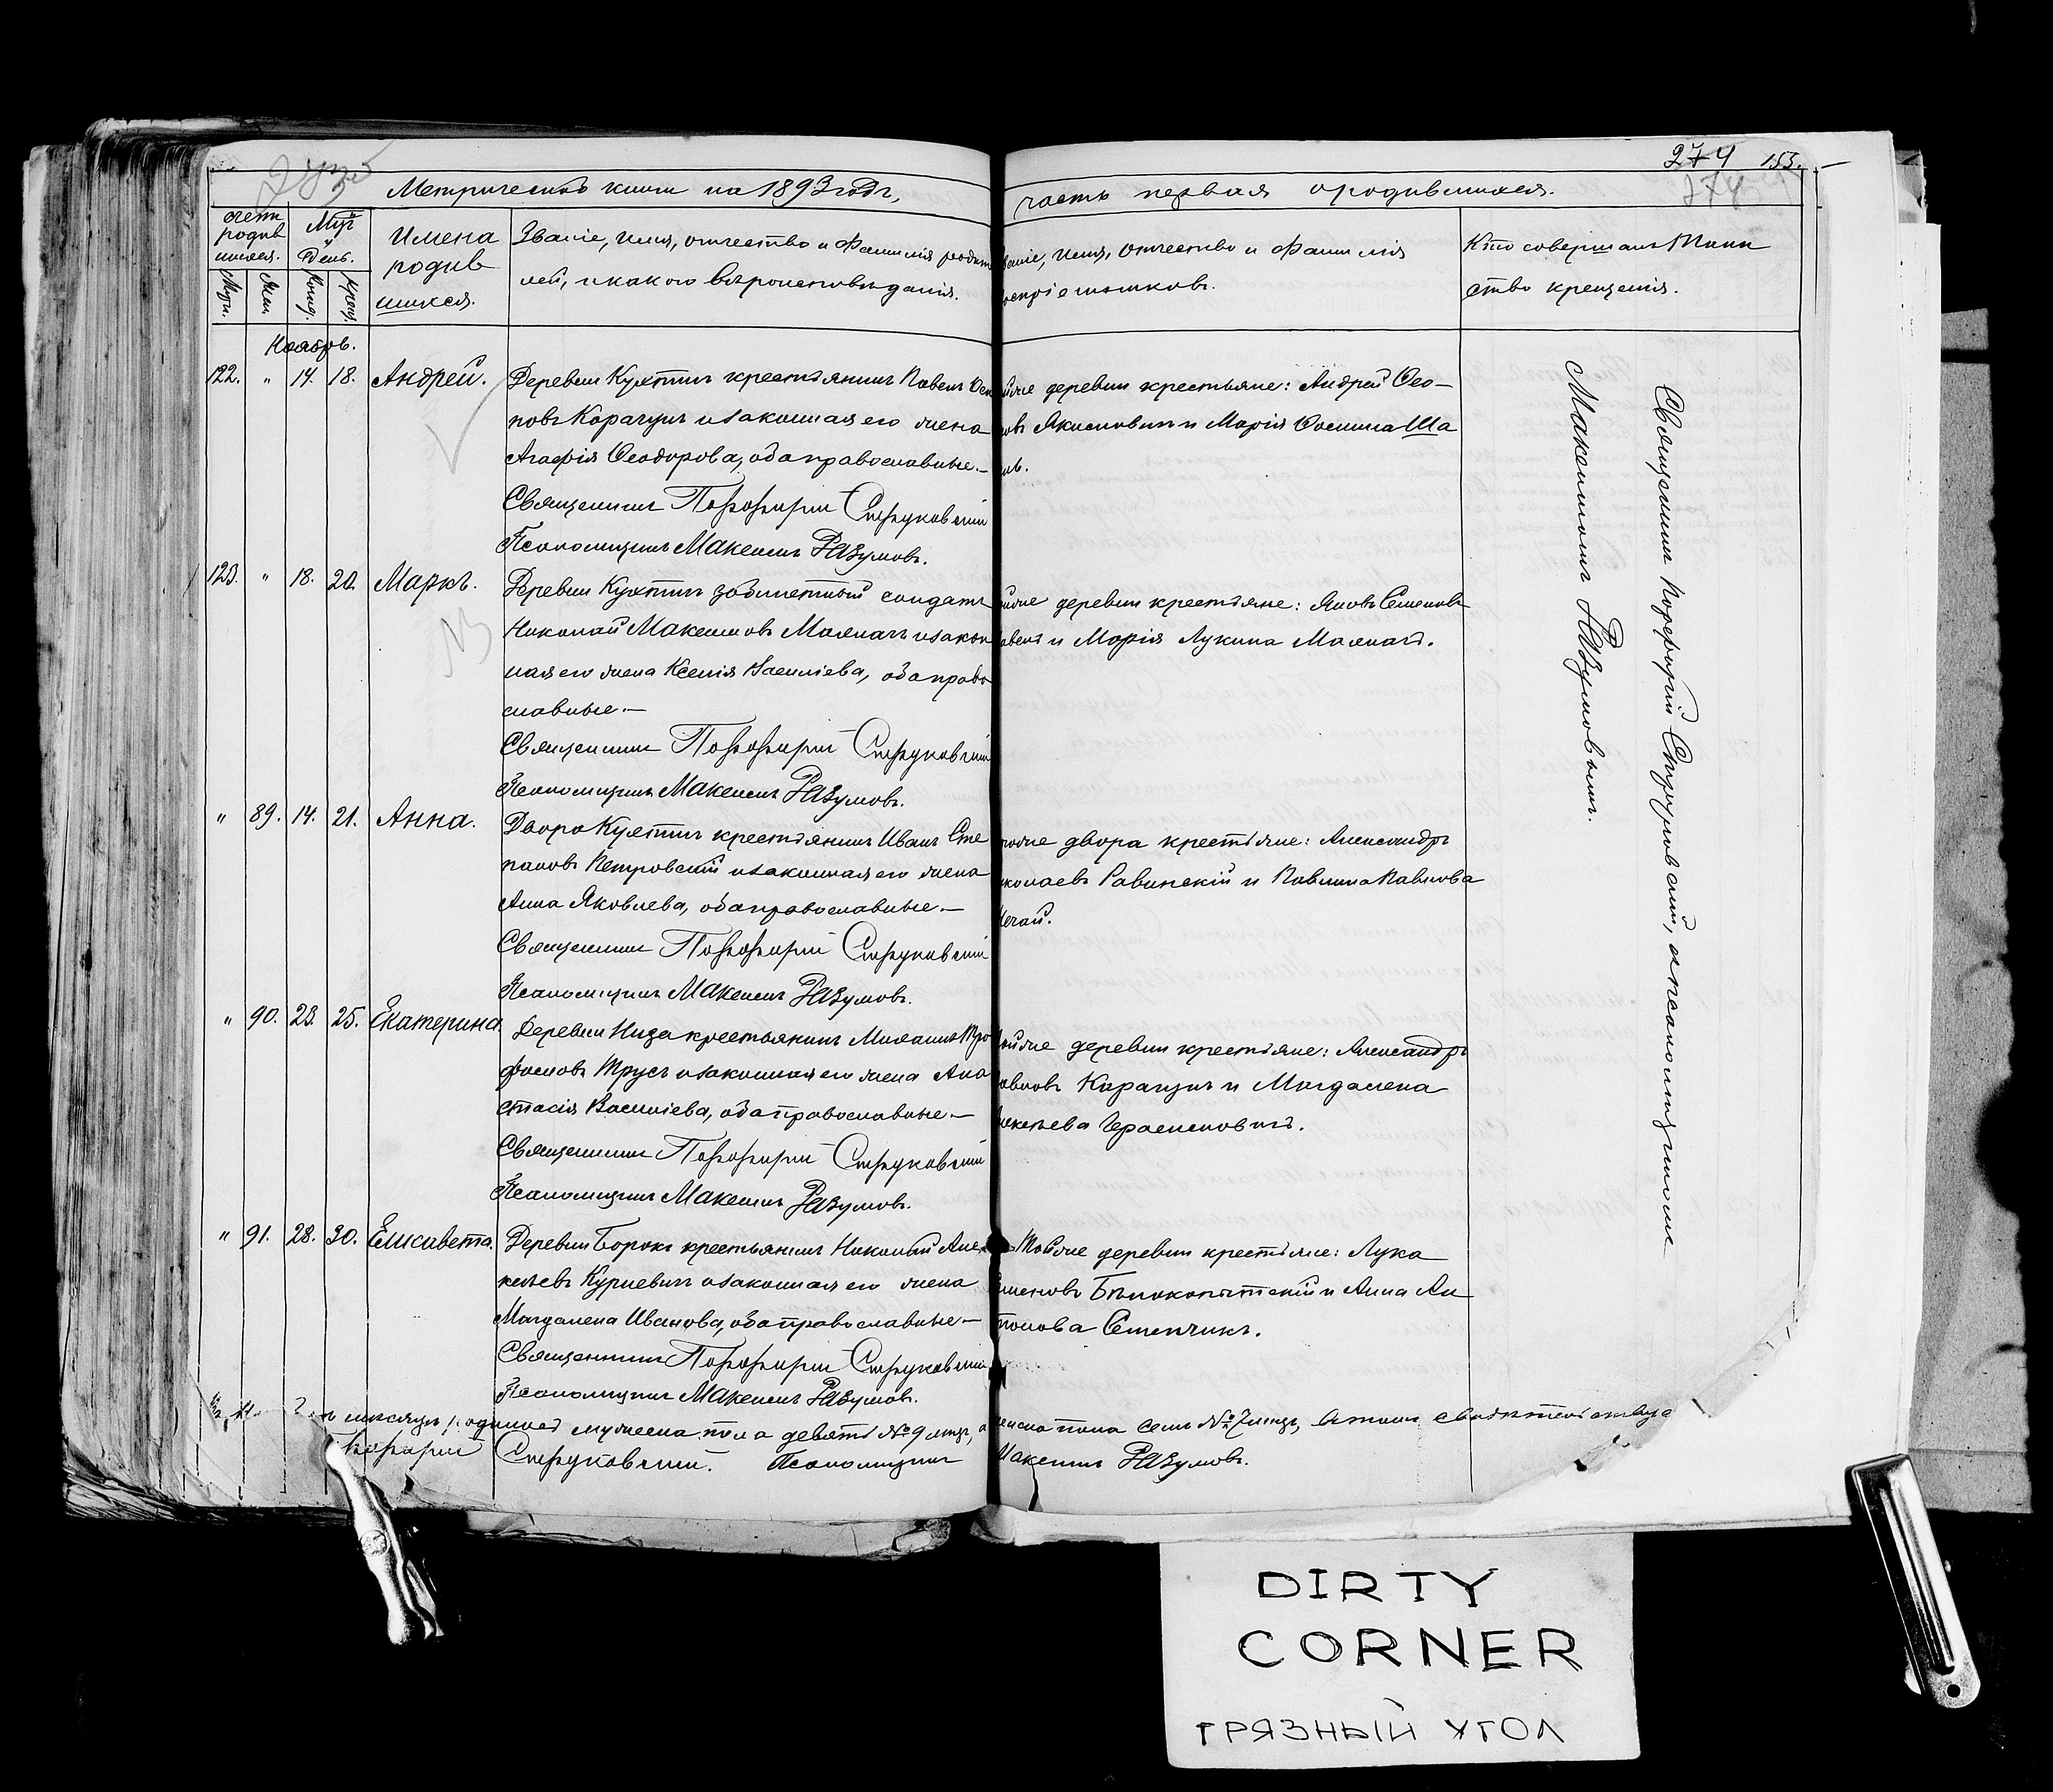 274 153.
274
Метрической книги на 1893 годъ, часть первая о родившихся.
Счетъ родив шихся.
Муж.
Жен.
Мѣс. и День.
Рожд.
Крещ.
Имена родив шихся.
Званіе, имя, отчество и фамилія родите
лей, и какого вѣроисповѣданія.
Званіе, имя, отчество и фамилія
воспріемниковъ.
Кто совершалъ Таин
ство крещенія.
Ноябрь.
122. " 14. 18. Андрей.
Деревни Кухтичъ крестьянинъ Павелъ Оси
повъ Карачунъ и законная его жена
Агафія Ѳеодорова, оба православные.—
Священникъ Порфирій Струковскій
Псаломщикъ Максимъ Разумовъ.
деревни крестьяне: Андрей
и Марія Ша
123. " 18. 20. Маркъ.
Деревни Кухтичъ забилетный солдатъ
Николай Максимовъ и закон
ная его жена Ксенія Василіева, оба право
славные.—
Священникъ Порфирій Струковскій
Псаломщикъ Максимъ Разумовъ.
деревни крестьяне: Яковъ Семеновъ
и Марія Лукина
" 89. 14. 21. Анна.
Двора Кухтичъ крестьянинъ Иванъ Сте
пановъ Петровскій и законная его жена
Анна Яковлева, оба православные.—
Священникъ Порфирій Струковскій
Псаломщикъ Максимъ Разумовъ.
двора крестьяне: Александръ
Николаевъ Равинскій и Павлина Павлова
" 90. 23. 25. Екатерина.
Деревни Низа крестьянинъ Тро
фимовъ Трусъ и законная его жена Ана
стасія Василіева, оба православные.—
Священникъ Порфирій Струковскій
Псаломщикъ Максимъ Разумовъ.
деревни крестьяне: Александръ
Карачунъ и Магдалена
Герасимовичъ.
" 91. 28. 30. Елисавета.
Деревни Борокъ крестьянинъ Николай Але
ксѣевъ Куриевичъ и законная его жена
Магдалена Иванова, оба православные—
Священникъ Порфирій Струковскій
Псаломщикъ Максимъ Разумовъ.
Той же деревни крестьяне: Лука
Семеновъ Бѣлокопытскій и Анна Ан
тонова Семенчикъ.
Священникъ Порфирій Струковскій, съ псаломщикомъ
Максимомъ Разумовымъ.
мѣсяцѣ родилось мужеска пола девять № 9 лицъ, а женска пола семь № 7 лицъ, въ томъ свидѣтельствуе
Порфирій Струковскій. Псаломщикъ Максимъ Разумовъ.
DIRTY
CORNER
ГРЯЗНЫЙ УГОЛ